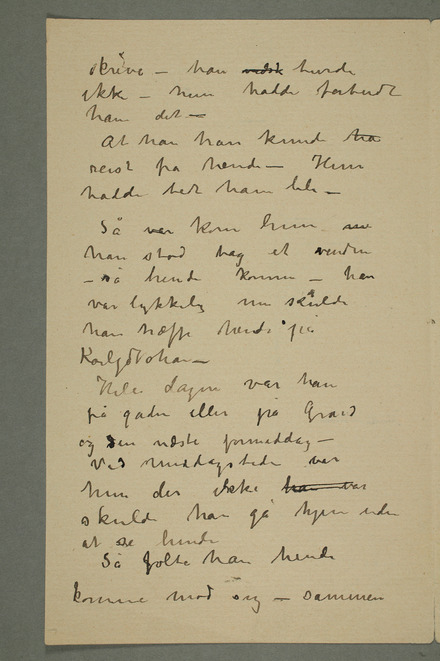 skrive – han turde
ikke – hun hadde forbudt
ham det –
At han han kunde ha
reist fra hende – Hun
hadde bedt ham bli –
Så var kom hun
han stod bag et vindu
– så hende komme – han
var lykkelig nu skulde
han træffe hende på
Karl Johan –
Hele dagen var han
på gaden eller på Grand
og den næste formiddag –
Ved middagstide var
hun der ikke han var
skulde han gå hjem uden
at se hende
Så folte han hende
komme mod sig – sammen